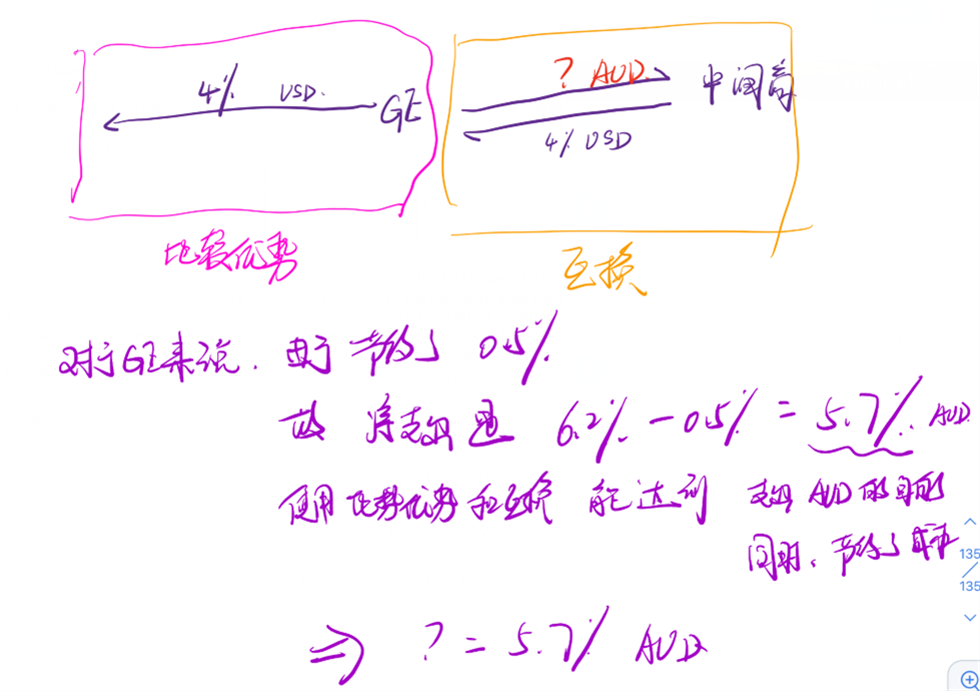 4% USD.
GE
? AUD.
中间商
4% USD
比较优势
互换
对于GE来说. 由于 节约了 0.5%
故 净支出是 6.2% - 0.5% = 5.7% AUD
使用比势优势和互换 能达到 支出 AUD 的目的
同时, 节约了成本
135
/
135
⇒ ? = 5.7% AUD